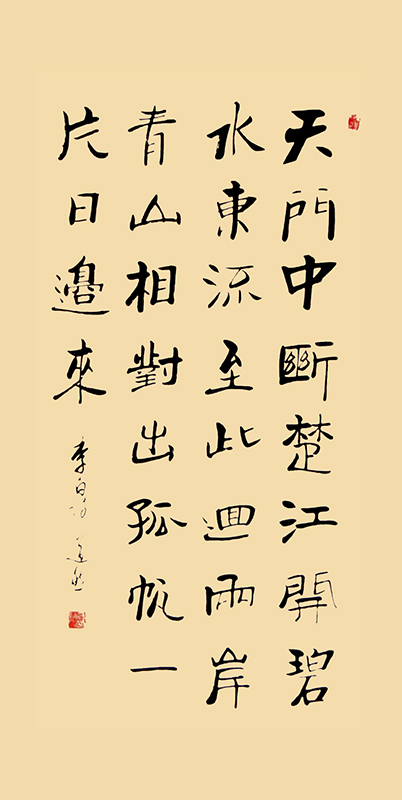 天門中斷楚江開碧
水東流至此迴兩岸
青山相對出孤帆一
片日邊來
李白詩